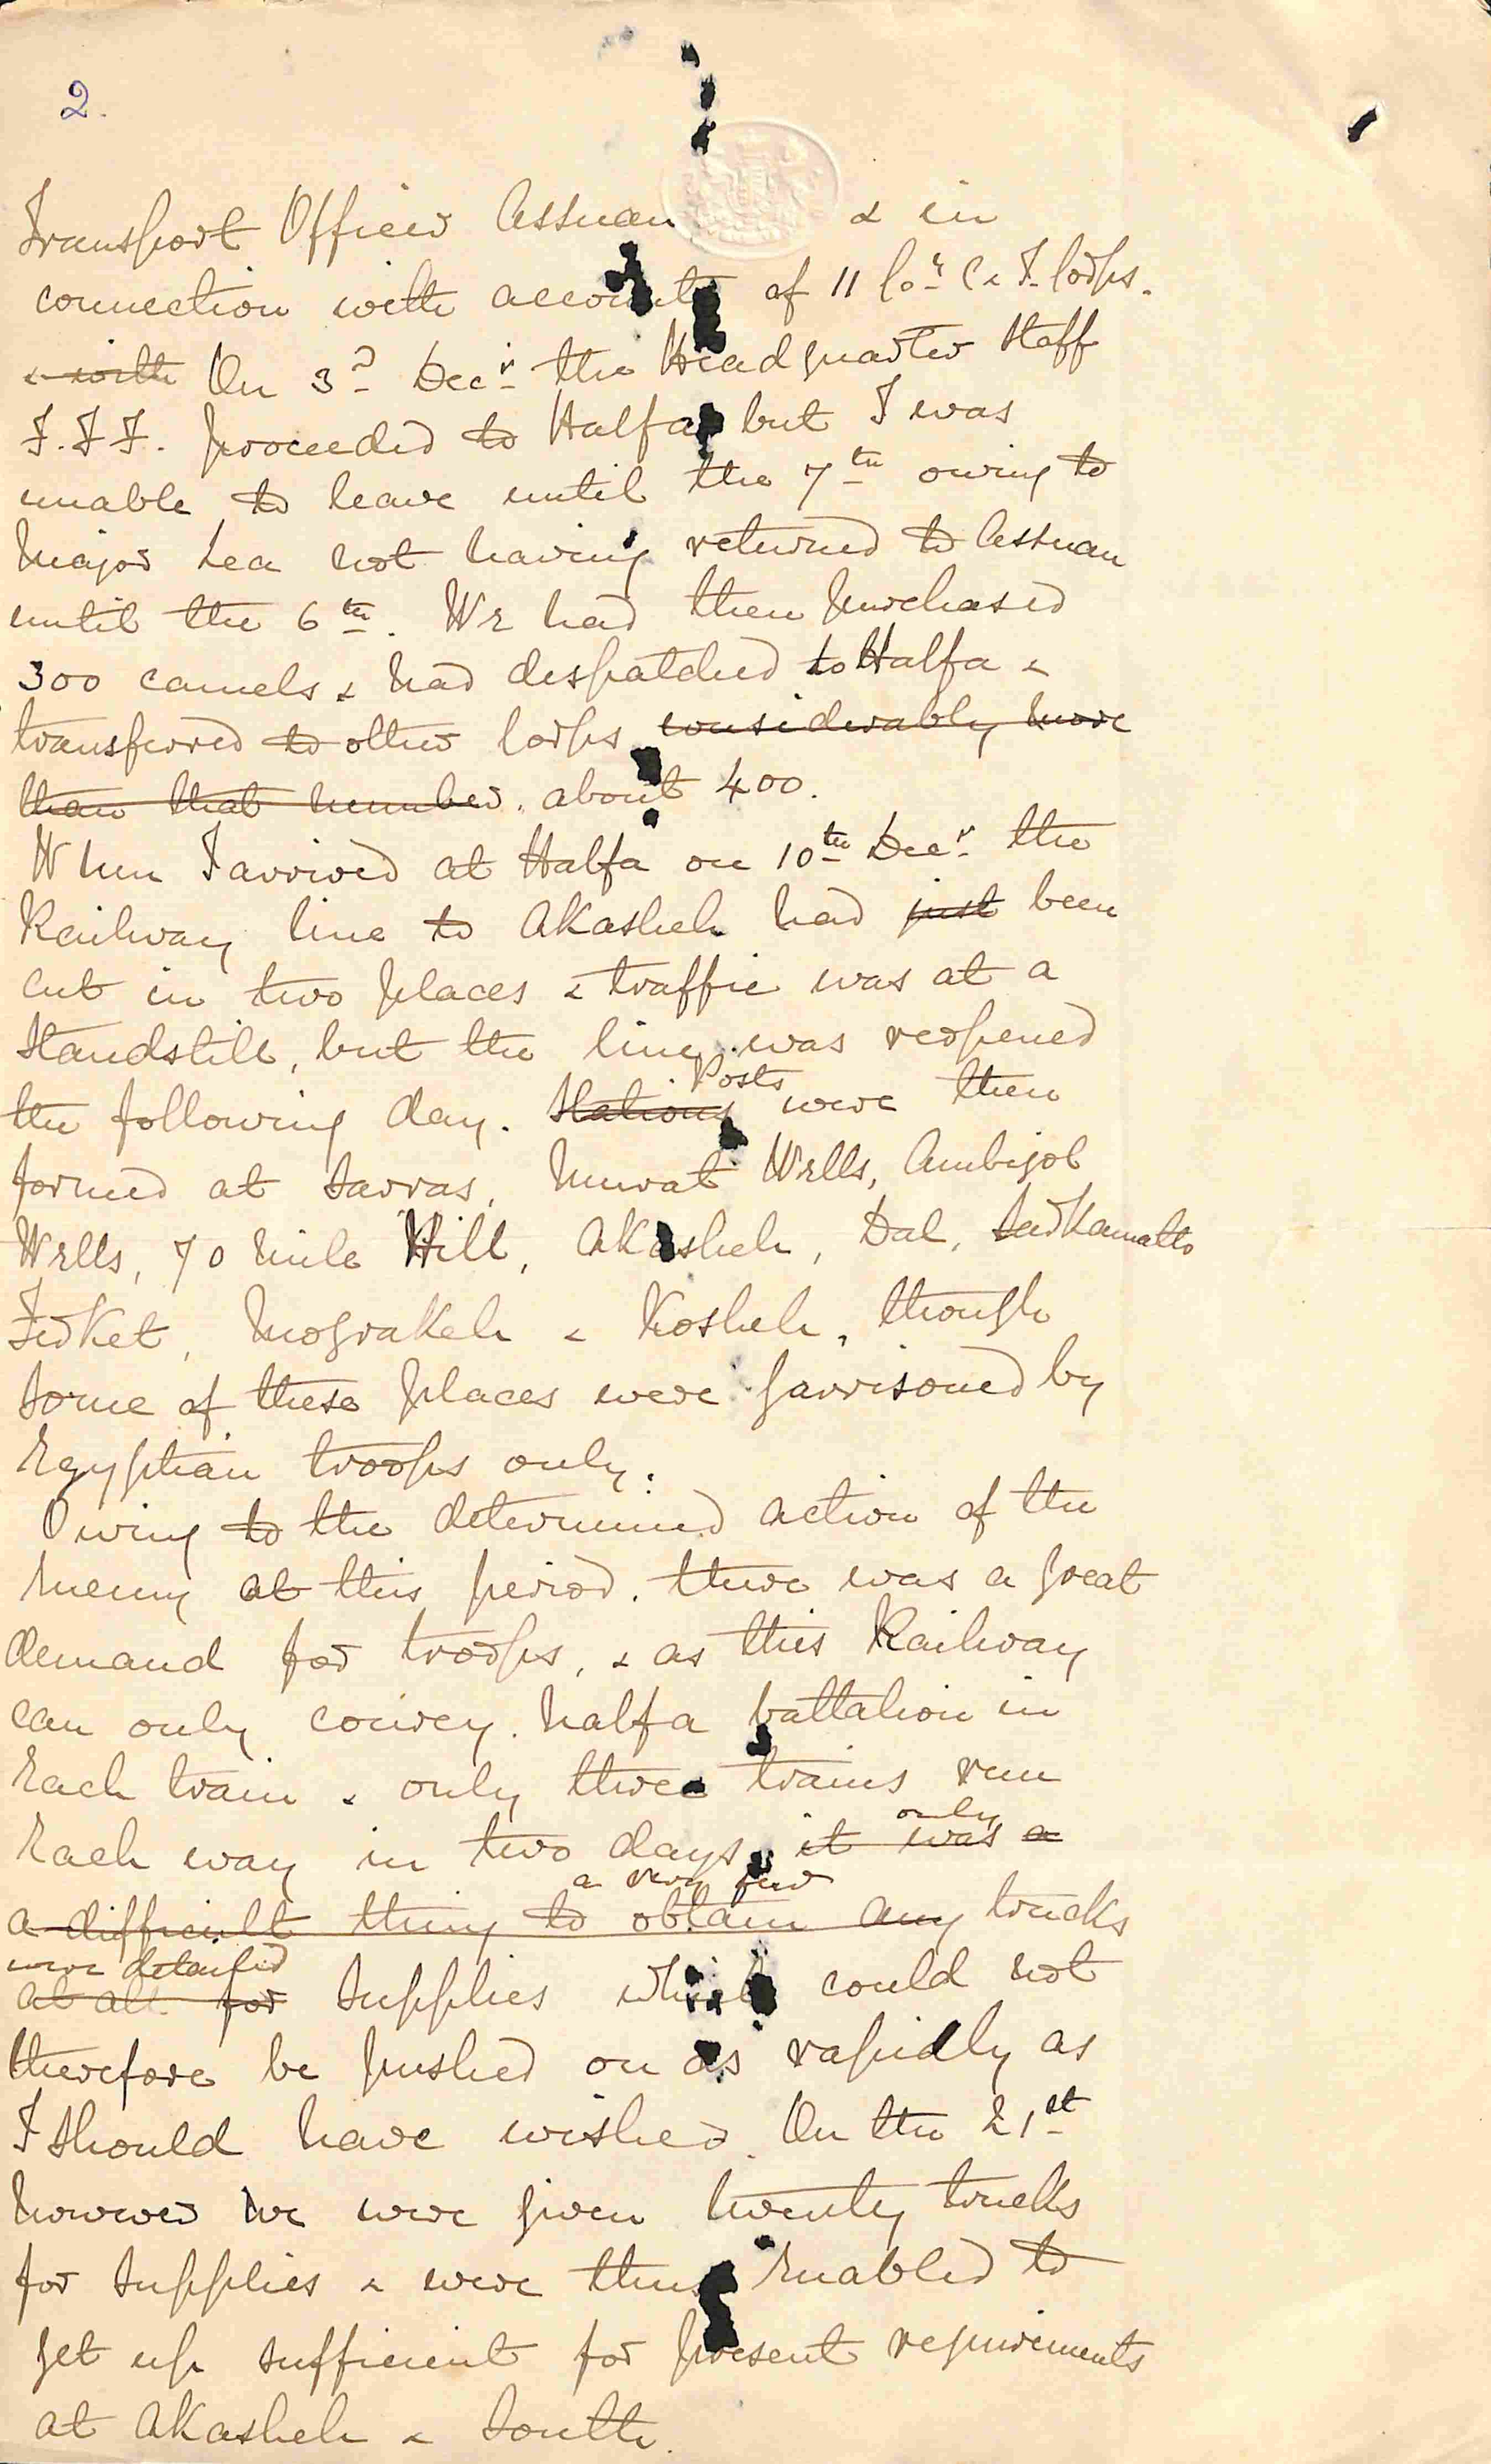 2.
Transport Officer Assuan & in
connection with accounts of 11 Coy C & T. Corps.
& with On 3d Decr the Headquarter Staff
F.F.F. proceeded to Halfa but I was
unable to leave until the 7th owing to
Major Lea not having returned to Assuan
until the 6th. We had then purchased
300 camels & had despatched to Halfa &
transferred to other Corps considerably more
than that number. about 400.
When I arrived at Halfa on 10th Decr the
Railway line to Akasheh had just been
cut in two places & traffic was at a
Standstill, but the line was reopened
Posts
the following day. Stations were then
formed at Sarras, Murat Wells, Ambigol
Wells, 70 Mile Hill, Akasheh, Dal, Sarkamatto
Firket, Mograkeh & Kosheh, though
Some of these places were garrisoned by
Egyptian troops only.
Owing to the determined action of the
Enemy at this period. there was a great
demand for troops, & as this Railway
can only convey half a battalion in
Each train & only three trains run
only
Each way in two days, it was a
a very few
a difficult thing to obtain any trucks
were detailed
at all for Supplies which could not
therefore be pushed on as rapidly as
I should have wished. On the 21st
however we were given twenty trucks
for Supplies & were thus Enabled to
get up sufficient for present requirements
at Akasheh & South.